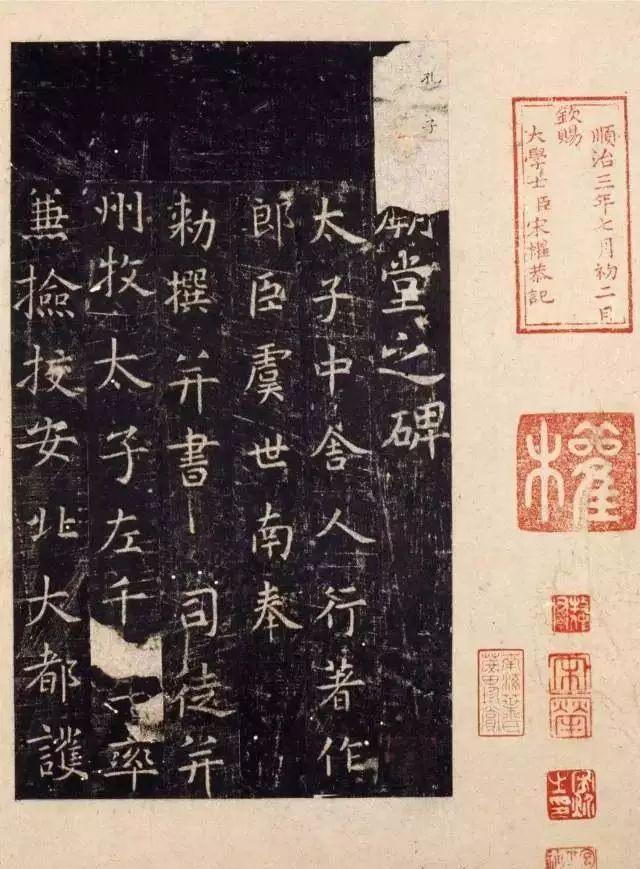 順治三年七月初二日
欽賜
大學士臣宋權恭記
權
孔子
廟堂之碑
太子中舍人行著作
郎臣虞世南奉
勑撰并書 司徒并
州牧太子左千 率
兼撿挍安北大都護